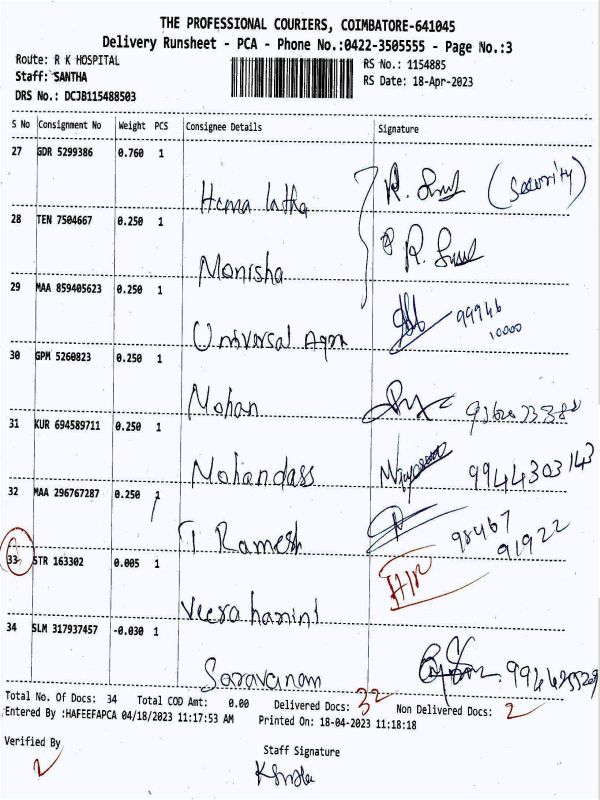 THE PROFESSIONAL COURIERS, COIMBATORE-641045
Delivery Runsheet - PCA - Phone No.:0422-3505555 - Page No.:3
Route: R K HOSPITAL
RS No.: 1154885
Staff: SANTHA
RS Date: 18-Apr-2023
DRS No.: DCJB115488503
S No Consignment No Weight PCS Consignee Details Signature
27 GDR 5299386 0.760 1
Hema latha R. (Security)
28 TEN 7504667 0.250 1
Monisha R.
29 MAA 859405623 0.250 1
Universal Aqm 99946
10000
30 GPM 5260823 0.250 1
Mohan
31 KUR 694589711 0.250 1
Mohandass 9944303143
32 MAA 296767287 0.250 1
T Ramesh 98467
91922
33 STR 163302 0.005 1
Veera harini
34 SLM 317937457 -0.030 1
Saravanam
Total No. Of Docs: 34 Total COD Amt: 0.00 Delivered Docs: 32 Non Delivered Docs: 2
Entered By :HAFEEFAPCA 04/18/2023 11:17:53 AM Printed On: 18-04-2023 11:18:18
Verified By
Staff Signature